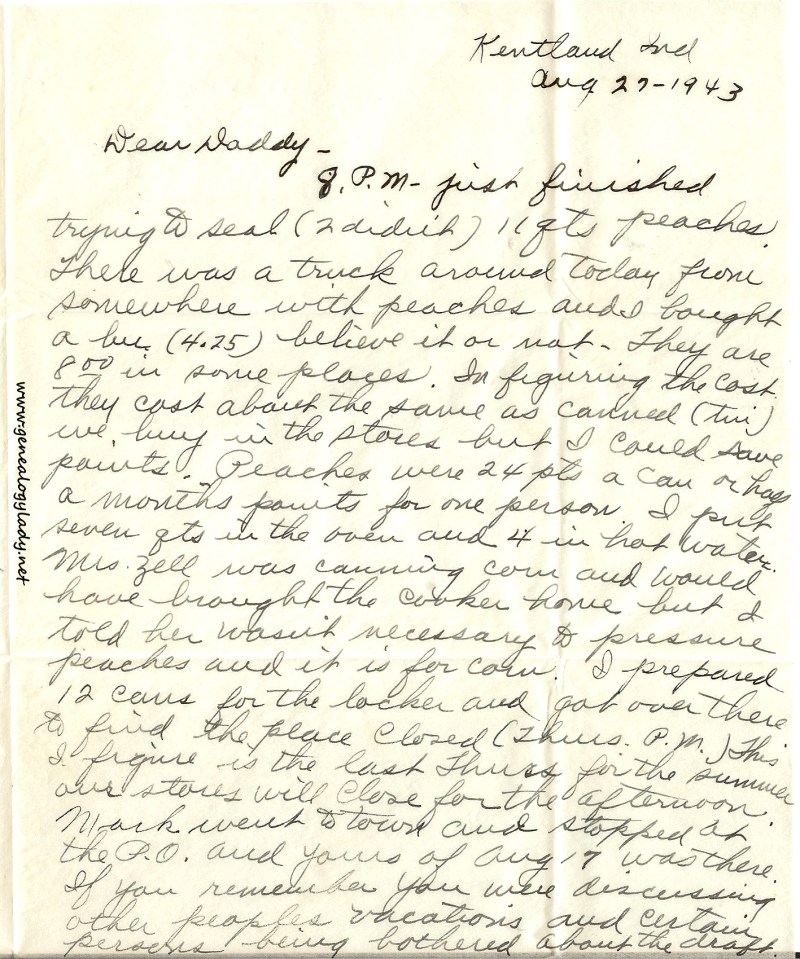 Kentland Ind
Aug 27-1943
Dear Daddy-
8. P.M- just finished
trying to seal (2 didn't) 11 qts peaches.
There was a truck around today from
somewhere with peaches and I bought
a bu. (4.25) believe it or not - They are
8.00 in some places. In figuring the cost
they cost about the same as canned (tin)
we buy in the stores but I could save
points. Peaches were 24 pts a can or
a months points for one person. I put
seven qts in the oven and 4 in hot water.
Mrs. Zell was canning corn and would
have brought the cooker home but I
told her wasn't necessary to pressure
peaches and it is for corn. I prepared
12 cans for the locker and got over there
to find the place closed (Thurs. P.M.) This
I figure is the last Thurs for the summer
our stores will close for the afternoon.
Mark went to town and stopped at
the P.O. and yours of Aug 17 was there.
If you remember you were discussing
other peoples vacations and certain
persons being bothered about the draft.
www.genealogylady.net